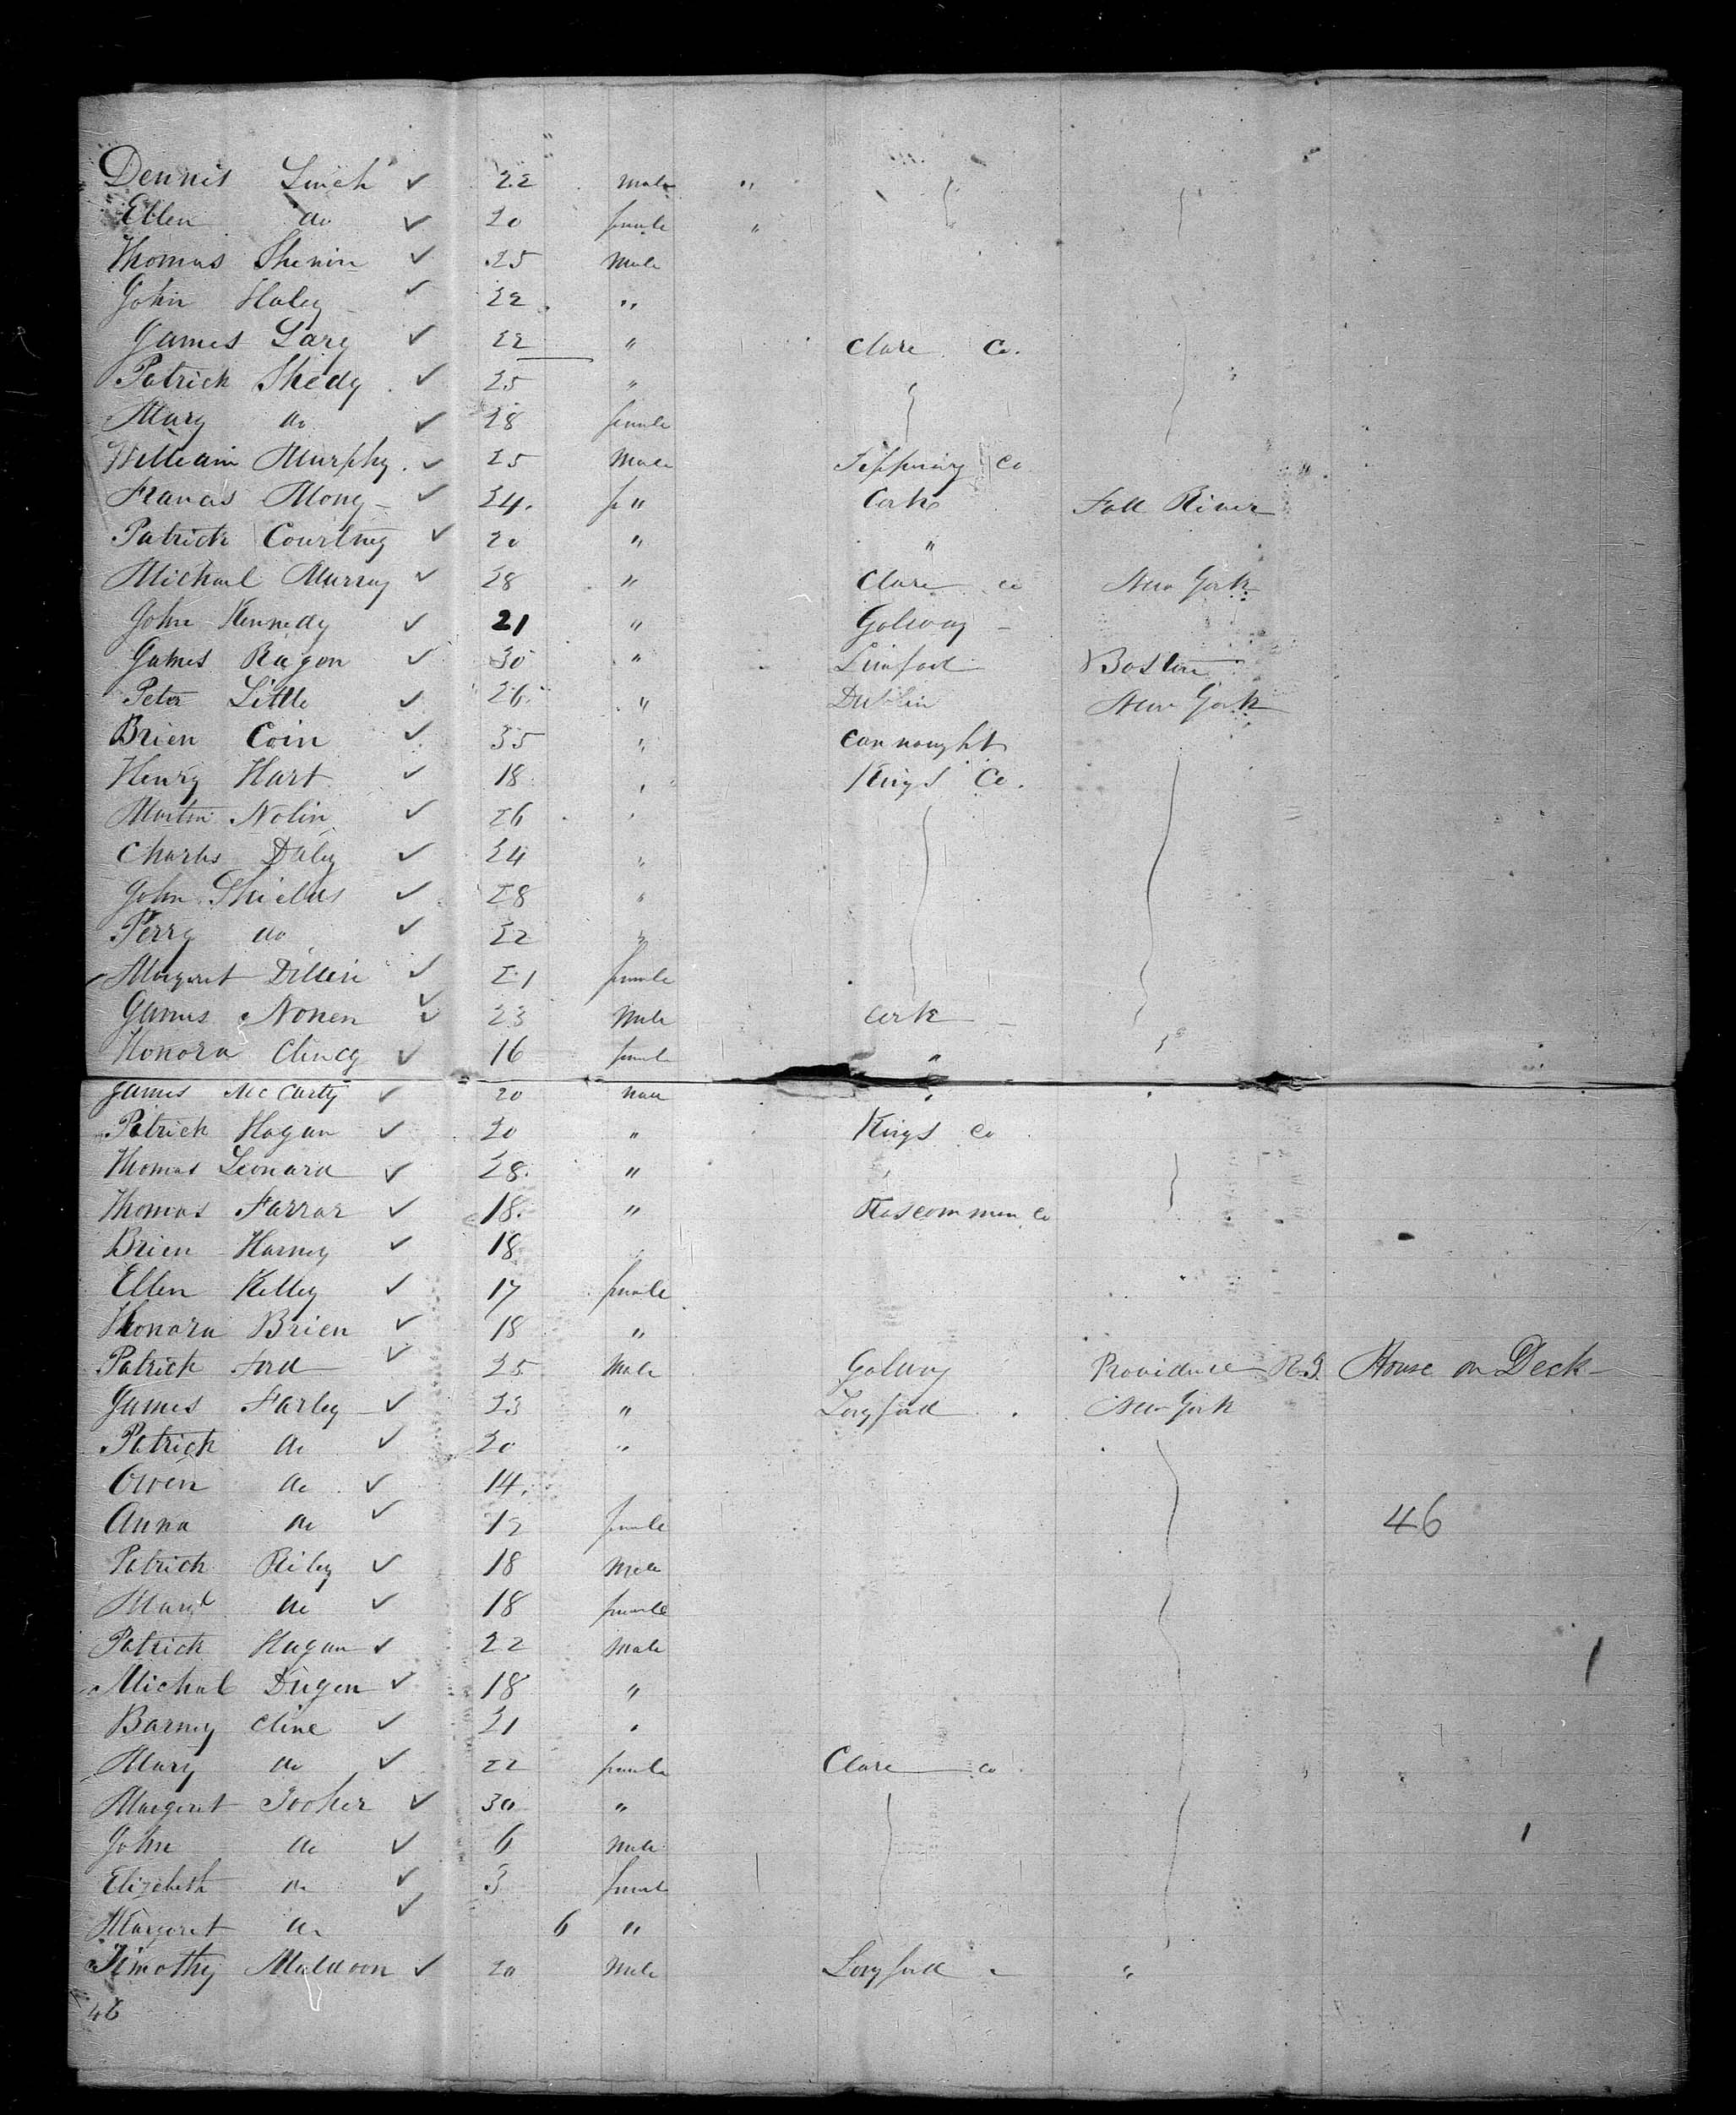 Dennis Linch ✓ 22 male " "
Ellen do ✓ 20 female "
Thomas Shenin ✓ 25 Male
John Haley ✓ 22 "
James Lary ✓ 22 " Clare Co.
Patrick Shedy ✓ 25 "
Mary do ✓ 28 female
William Murphy ✓ 25 Male Tipperary Co
Francis Mony ✓ 24 " Cork Fall River
Patrick Courtney ✓ 20 " "
Michael Murray ✓ 28 " Clare co New York
John Kennedy ✓ 21 " Galway
James Ragon ✓ 30 " Boston
Peter Little ✓ 26 " Dublin New York
Brien Coin ✓ 35 " Connought
Henry Hart ✓ 18 " Kings Co.
Martin Nolin ✓ 26 "
Charles Daley ✓ 24 "
John Shields ✓ 28 "
Perry do ✓ 22 "
Margaret Dillen ✓ 21 female
James Nonen ✓ 23 Male Cork
Honora Clincy ✓ 16 female "
James McCarty ✓ 20 male "
Patrick Hogan ✓ 20 " Kings Co
Thomas Leonard ✓ 28 " "
Thomas Farrar ✓ 18 " Roscommon Co
Brien Harney ✓ 18
Ellen Kelley ✓ 17 female
Honora Brien ✓ 18 "
Patrick Ford ✓ 25 Male Galway Providence R.I. House on Deck
James Farley ✓ 23 " Longford New York
Patrick do ✓ 20 "
Owen do ✓ 14
Anna do ✓ 12 female 46
Patrick Riley ✓ 18 Male
Mary do ✓ 18 female
Patrick Hagan ✓ 22 Male
Michal Dugen ✓ 18 "
Barney Cline ✓ 21 "
Mary do ✓ 22 female Clare co
Margaret Tooher ✓ 30 "
John do ✓ 6 Male
Elizebeth do ✓ 3 female
Margaret do ✓ 6 "
Timothy Muldoon ✓ 20 Male Longford "
46